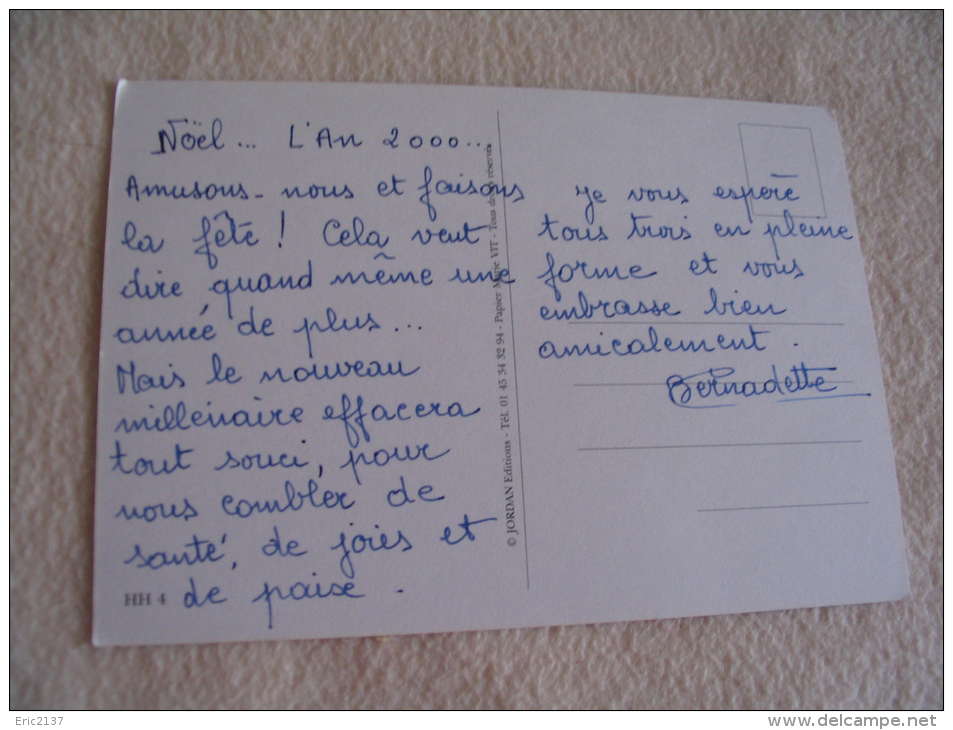 Nöel... L'An 2000...
Amusons-nous et faisons
la fête! Cela veut
dire, quand même une
année de plus...
Mais le nouveau
millenaire effacera
tout souci, pour
nous combler de
santé, de joies et
de paise.
HH 4
© JORDAN Editions - Tél. 01 43 34 82 94 - Papier Magie VTT - Tous droits réservés
Je vous espère
tous trois en pleine
forme et vous
embrasse bien
amicalement.
Bernadette
Eric2137
www.delcampe.net